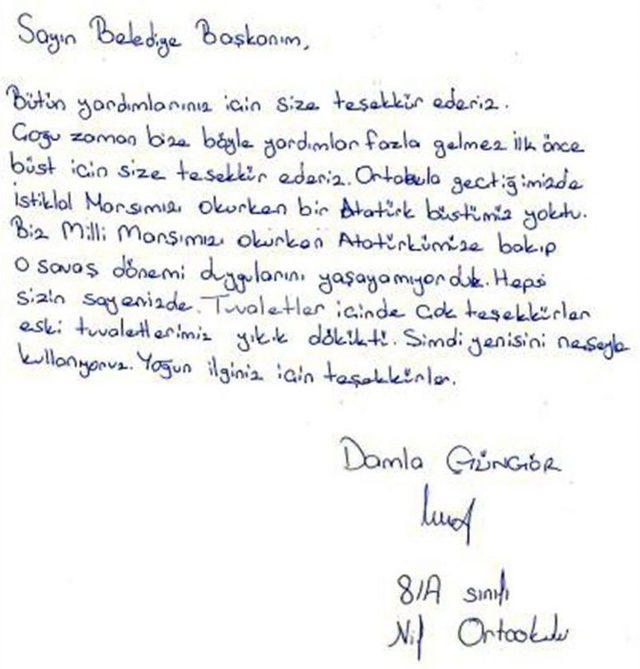 Sayın Belediye Başkanım,
Bütün yardımlarınız için size teşekkür ederiz.
Çoğu zaman bize böyle yardımlar fazla gelmez ilk önce
büst için size teşekkür ederiz. Ortabula geçtiğimizde
İstiklal Marşımızı okurken bir Atatürk büstümüz yoktu.
Biz Milli Marşımızı okurken Atatürkümüze bakıp
o savaş dönemi duygularını yaşayamıyorduk. Hepsi
sizin sayenizde. Tuvaletler içinde çok teşekkürler
eski tuvaletlerimiz yıkık dökükti. Şimdi yenisini neşeyle
kullanıyoruz. Yoğun ilginiz için teşekkürler.
Damla GÜNGÖR
8/A sınıfı
Nif Ortaokulu